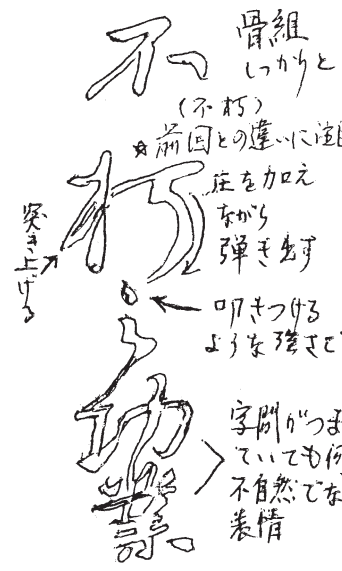 不
骨組
しっかりと
(不朽)
☆前回との違いに注目
朽
圧を加え
ながら
弾き出す
突き上げる
之
叩きつける
ような強さで
功
業
字間がつま
ていても
不自然でな
表情